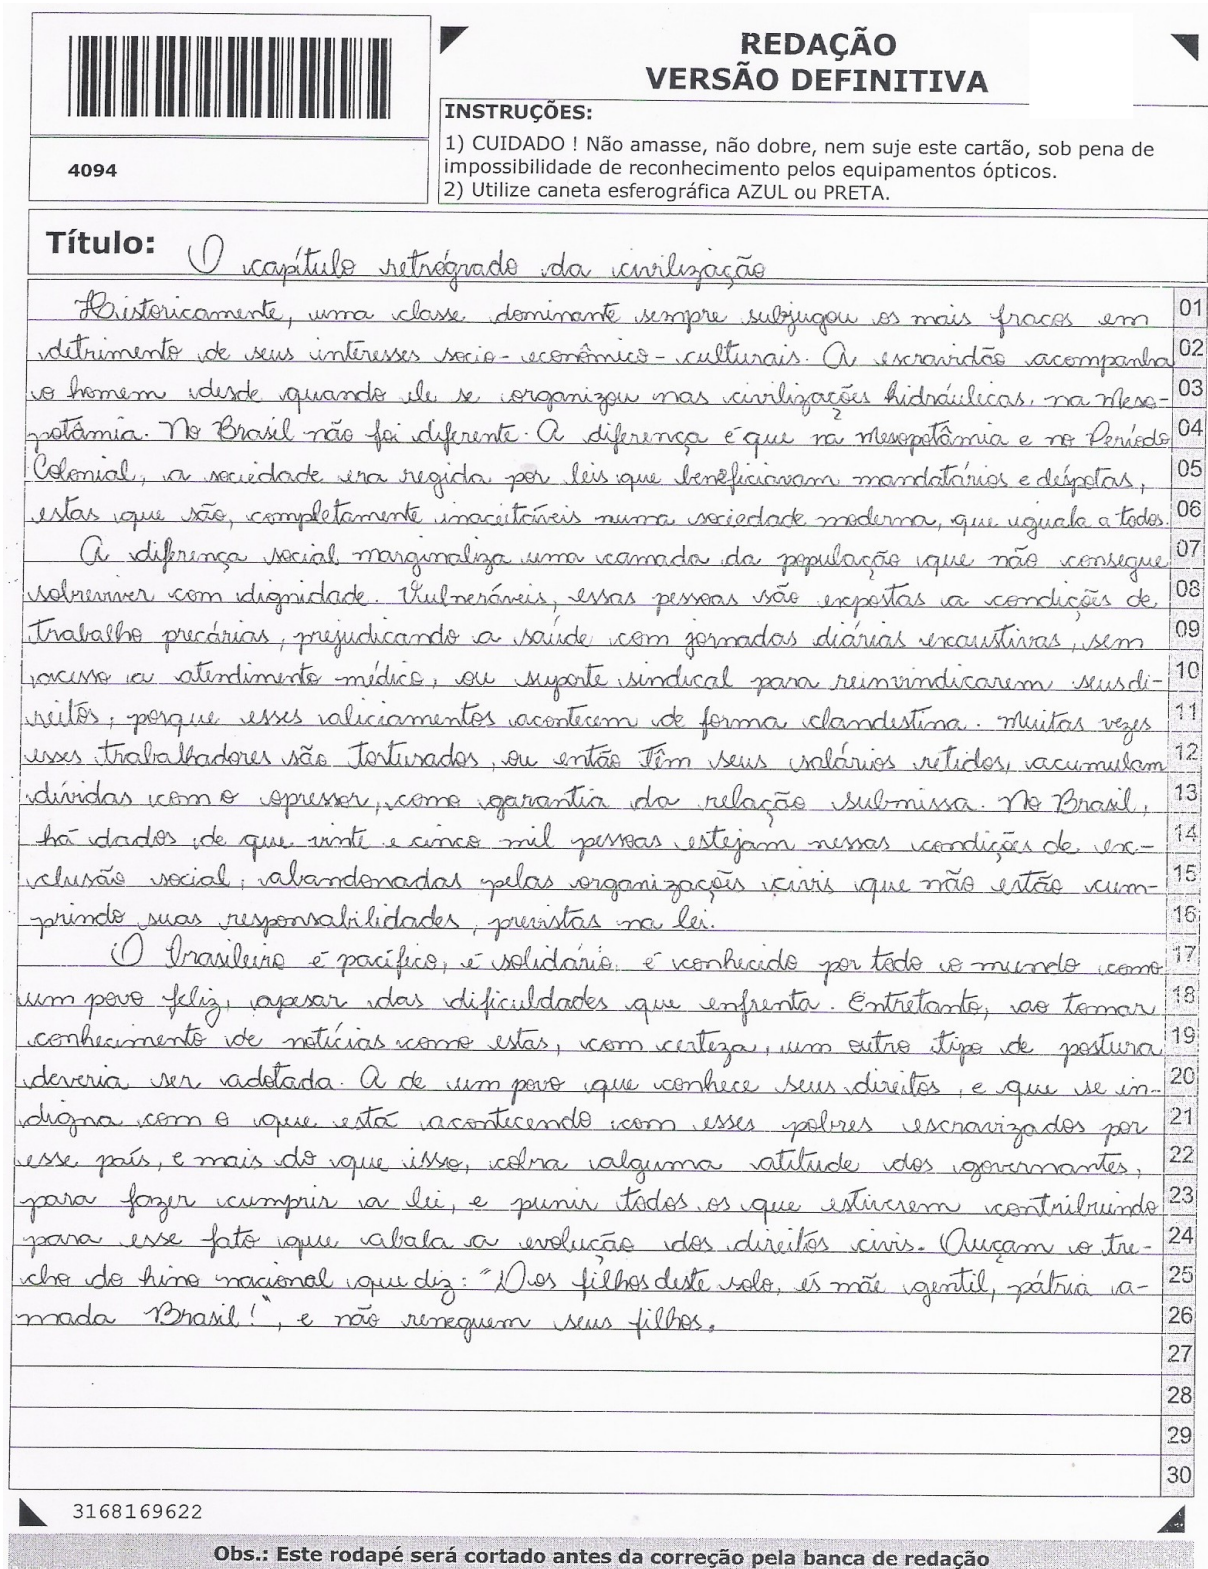 REDAÇÃO
VERSÃO DEFINITIVA
INSTRUÇÕES:
1) CUIDADO ! Não amasse, não dobre, nem suje este cartão, sob pena de
impossibilidade de reconhecimento pelos equipamentos ópticos.
2) Utilize caneta esferográfica AZUL ou PRETA.
4094
Título: O capítulo retrógrado da civilização
Historicamente, uma classe dominante sempre subjugou os mais fracos em 01
detrimento de seus interesses socio-econômico-culturais. A escravidão acompanha 02
o homem desde quando ele se organizou nas civilizações hidráulicas, na Meso- 03
potâmia. No Brasil não foi diferente. A diferença é que na Mesopotâmia e no Período 04
Colonial, a sociedade era regida por leis que beneficiavam mandatários e déspotas, 05
estas que são, completamente inaceitáveis numa sociedade moderna, que iguala a todos. 06
A diferença social marginaliza uma camada da população que não consegue 07
sobreviver com dignidade. Vulneráveis, essas pessoas são expostas a condições de 08
trabalho precárias, prejudicando a saúde com jornadas diárias exaustivas, sem 09
acesso a atendimento médico, ou suporte sindical para reinvindicarem seus di- 10
reitos, porque esses aliciamentos acontecem de forma clandestina. Muitas vezes 11
esses trabalhadores são torturados, ou então têm seus salários retidos, acumulam 12
dívidas com o opressor, como garantia da relação submissa. No Brasil, 13
há dados de que vinte e cinco mil pessoas estejam nessas condições de ex- 14
clusão social, abandonadas pelas organizações civis que não estão cum- 15
prindo suas responsabilidades, previstas na lei. 16
O brasileiro é pacífico, é solidário, é conhecido por todo o mundo como 17
um povo feliz, apesar das dificuldades que enfrenta. Entretanto, ao tomar 18
conhecimento de notícias como estas, com certeza, um outro tipo de postura 19
deveria ser adotada. A de um povo que conhece seus direitos, e que se in- 20
digna com o que está acontecendo com esses pobres escravizados por 21
esse país, e mais do que isso, cobra alguma atitude dos governantes, 22
para fazer cumprir a lei, e punir todos os que estiverem contribuindo 23
para esse fato que abala a evolução dos direitos civis. Ouçam o tre- 24
cho do hino nacional que diz: "Dos filhos deste solo, és mãe gentil, pátria a- 25
mada Brasil!", e não reneguem seus filhos. 26
27
28
29
30
3168169622
Obs.: Este rodapé será cortado antes da correção pela banca de redação